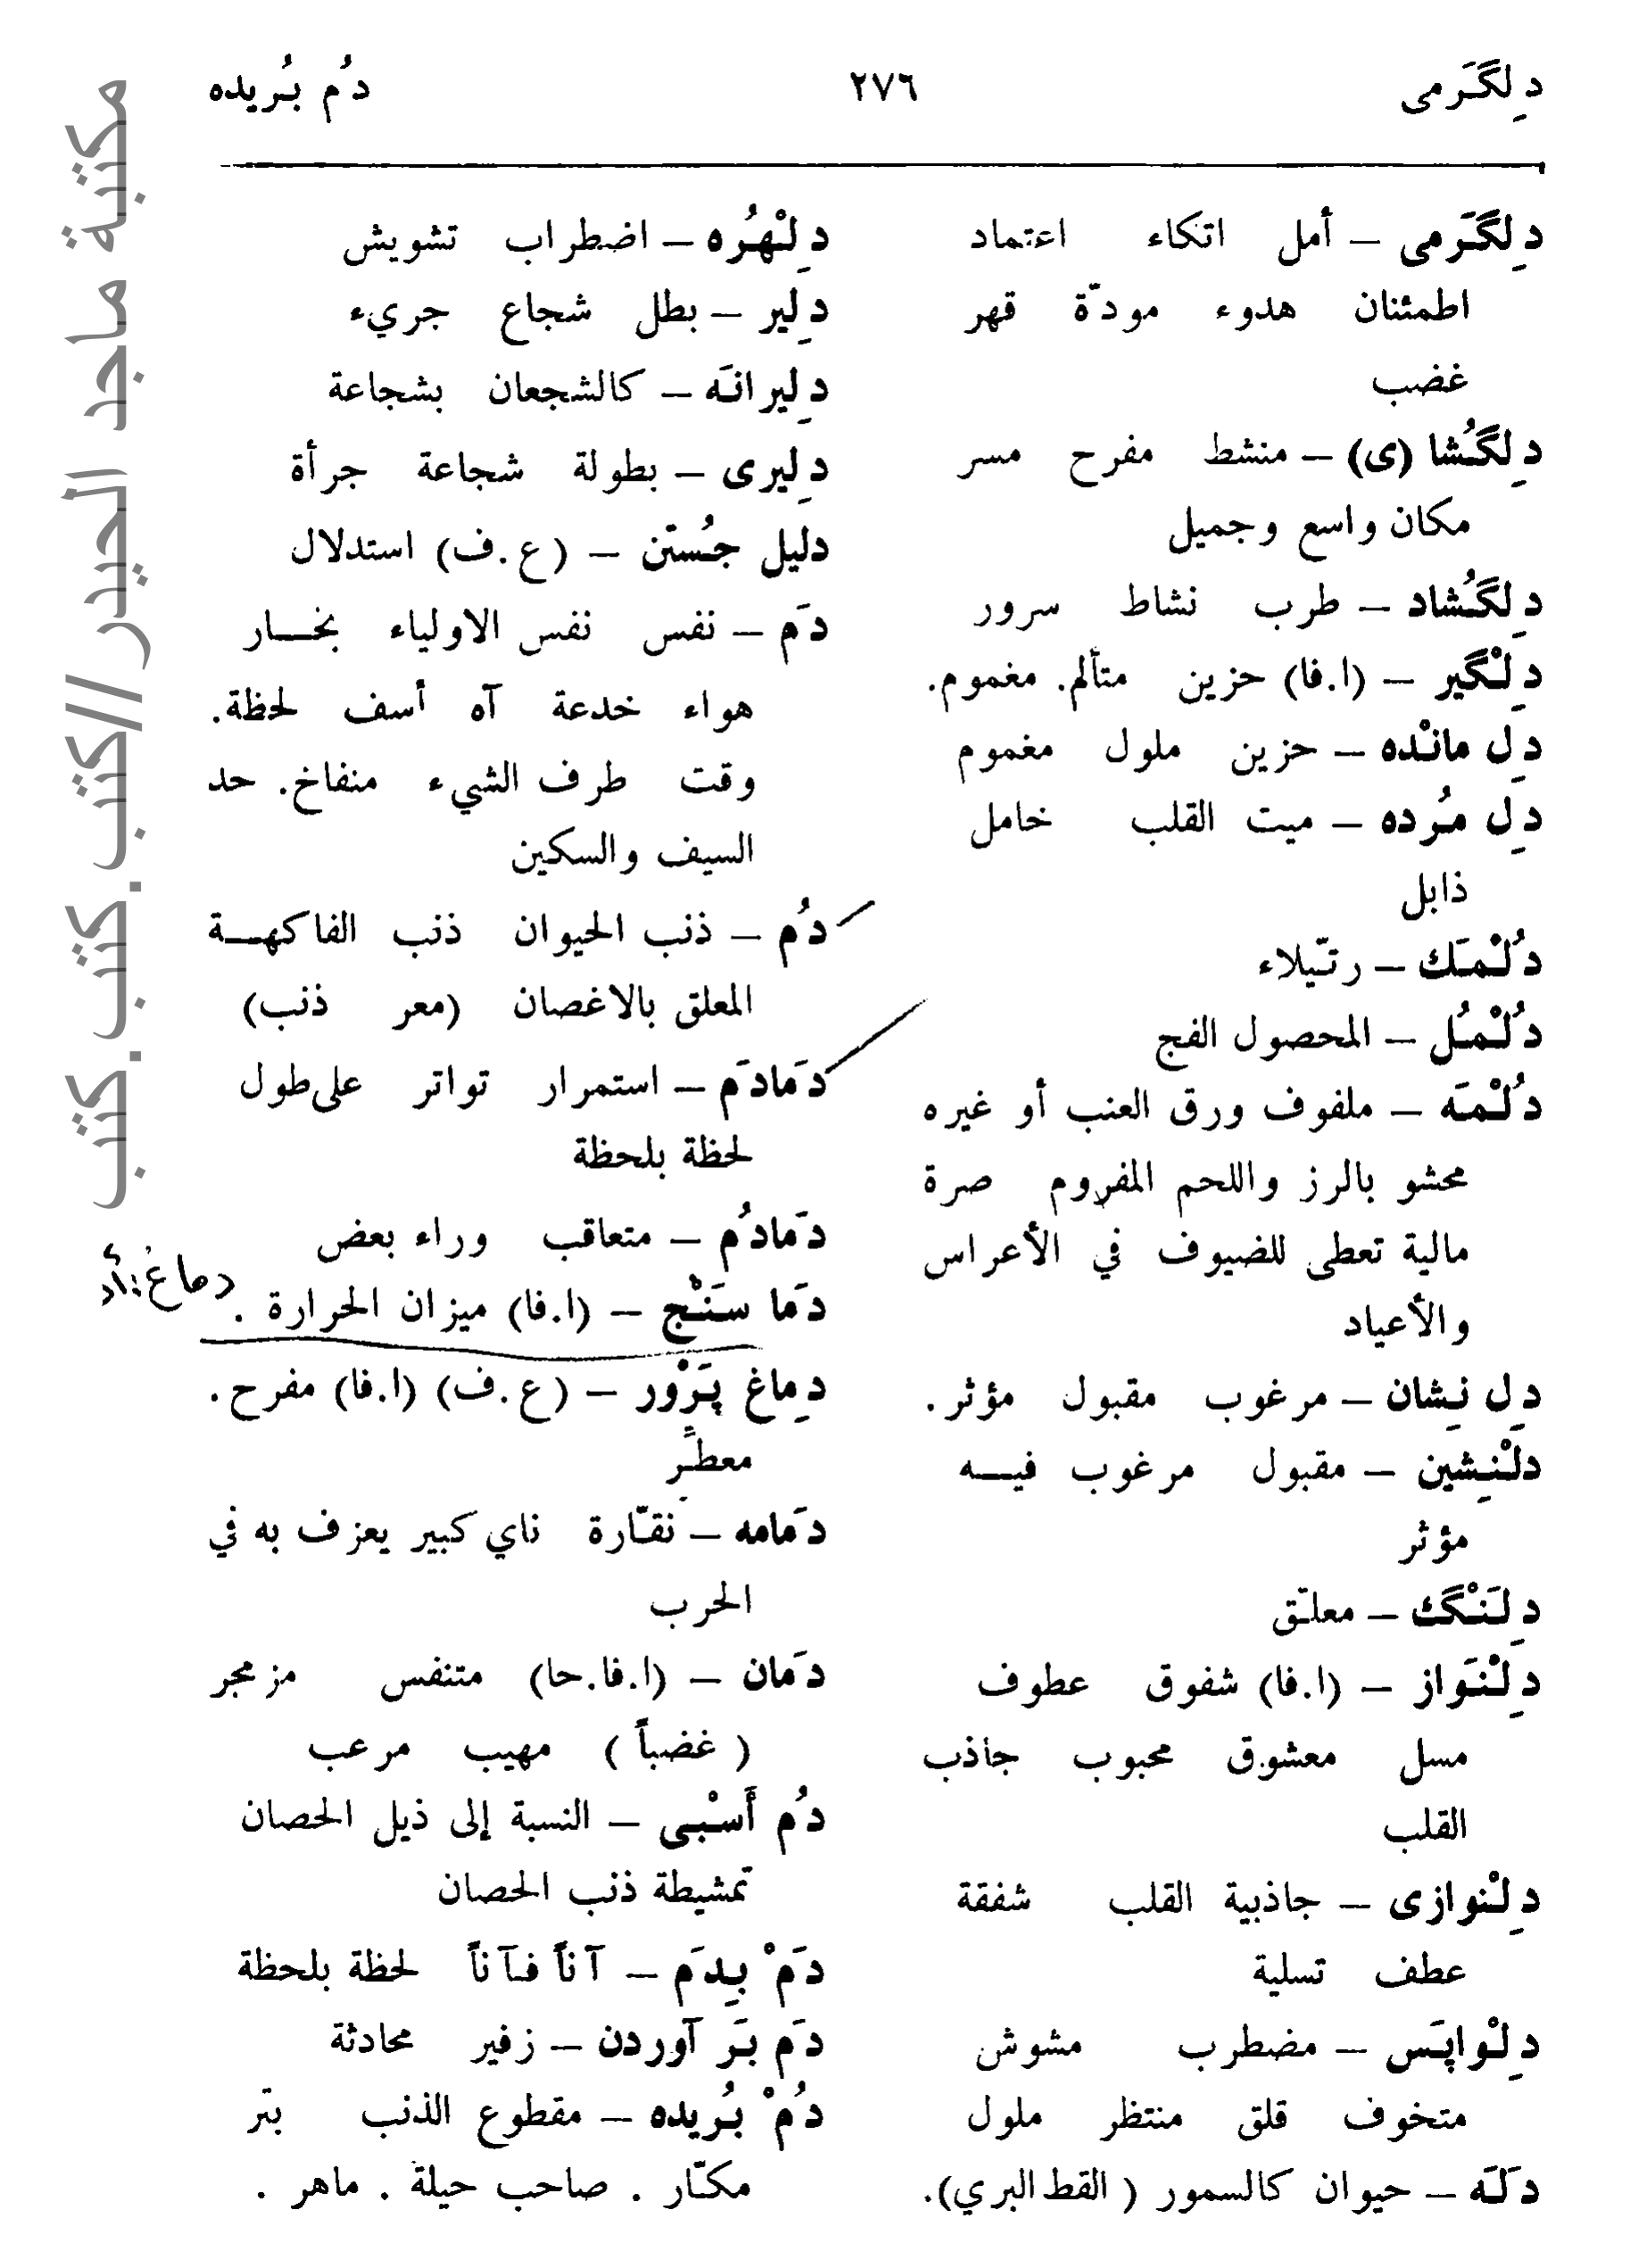 دِلگَرمی
٢٧٦
دُم بُریده
دِلگَرمی – أمل اتكاء اعتماد
اطمئنان هدوء مودّة قهر
غضب
دِلگُشا (ی) – منشط مفرح مسر
مكان واسع وجميل
دِلگُشاد – طرب نشاط سرور
دِلْگیر – (ا.فا) حزين متألم. مغموم.
دِل مانْده – حزين ملول مغموم
دِل مُرده – ميت القلب خامل
ذابل
دُلْمَك – رتّيلاء
دُلْمُل – المحصول الفج
دُلْمَه – ملفوف ورق العنب أو غيره
محشو بالرز واللحم المفروم صرة
مالية تعطى للضيوف في الأعراس
والأعياد
دِل نِشان – مرغوب مقبول مؤثر.
دلْنِشین – مقبول مرغوب فيـــه
مؤثر
دِلَنْگ – معلّق
دِلْنَواز – (ا.فا) شفوق عطوف
مسل معشوق محبوب جاذب
القلب
دِلْنوازی – جاذبية القلب شفقة
عطف تسلية
دِلْواپَس – مضطرب مشوش
متخوف قلق منتظر ملول
دَلَه – حيوان كالسمور ( القط البري).
دِلْهُره – اضطراب تشويش
دِلیر – بطل شجاع جريء
دِلیرانَه – كالشجعان بشجاعة
دِلیری – بطولة شجاعة جرأة
دلیل جُستَن – (ع.ف) استدلال
دَم – نفس نفس الاولياء بخـــار
هواء خدعة آه أسف لحظة.
وقت طرف الشيء منفاخ. حد
السيف والسكين
دُم – ذنب الحيوان ذنب الفاكهـــة
المعلق بالاغصان (معر ذنب)
دَمادَم – استمرار تواتر على طول
لحظة بلحظة
دَمادُم – متعاقب وراء بعض
دَما سَنْج – (ا.فا) ميزان الحرارة .
دِماغ پَرْوَر – (ع.ف) (ا.فا) مفرح.
معطِّر
دَمامه – نقّارة ناي كبير يعزف به في
الحرب
دَمان – (ا.فا.حا) متنفس مزمجر
( غضباً ) مهيب مرعب
دُم أَسْبی – النسبة إلى ذيل الحصان
تمشيطة ذنب الحصان
دَمْ بِدَم – آناً فآناً لحظة بلحظة
دَم بَر آوردن – زفير محادثة
دُمْ بُریده – مقطوع الذنب بتر
مكّار . صاحب حيلة . ماهر .
مكتبة ماجد الحيدر//كتب.كتب.كتب